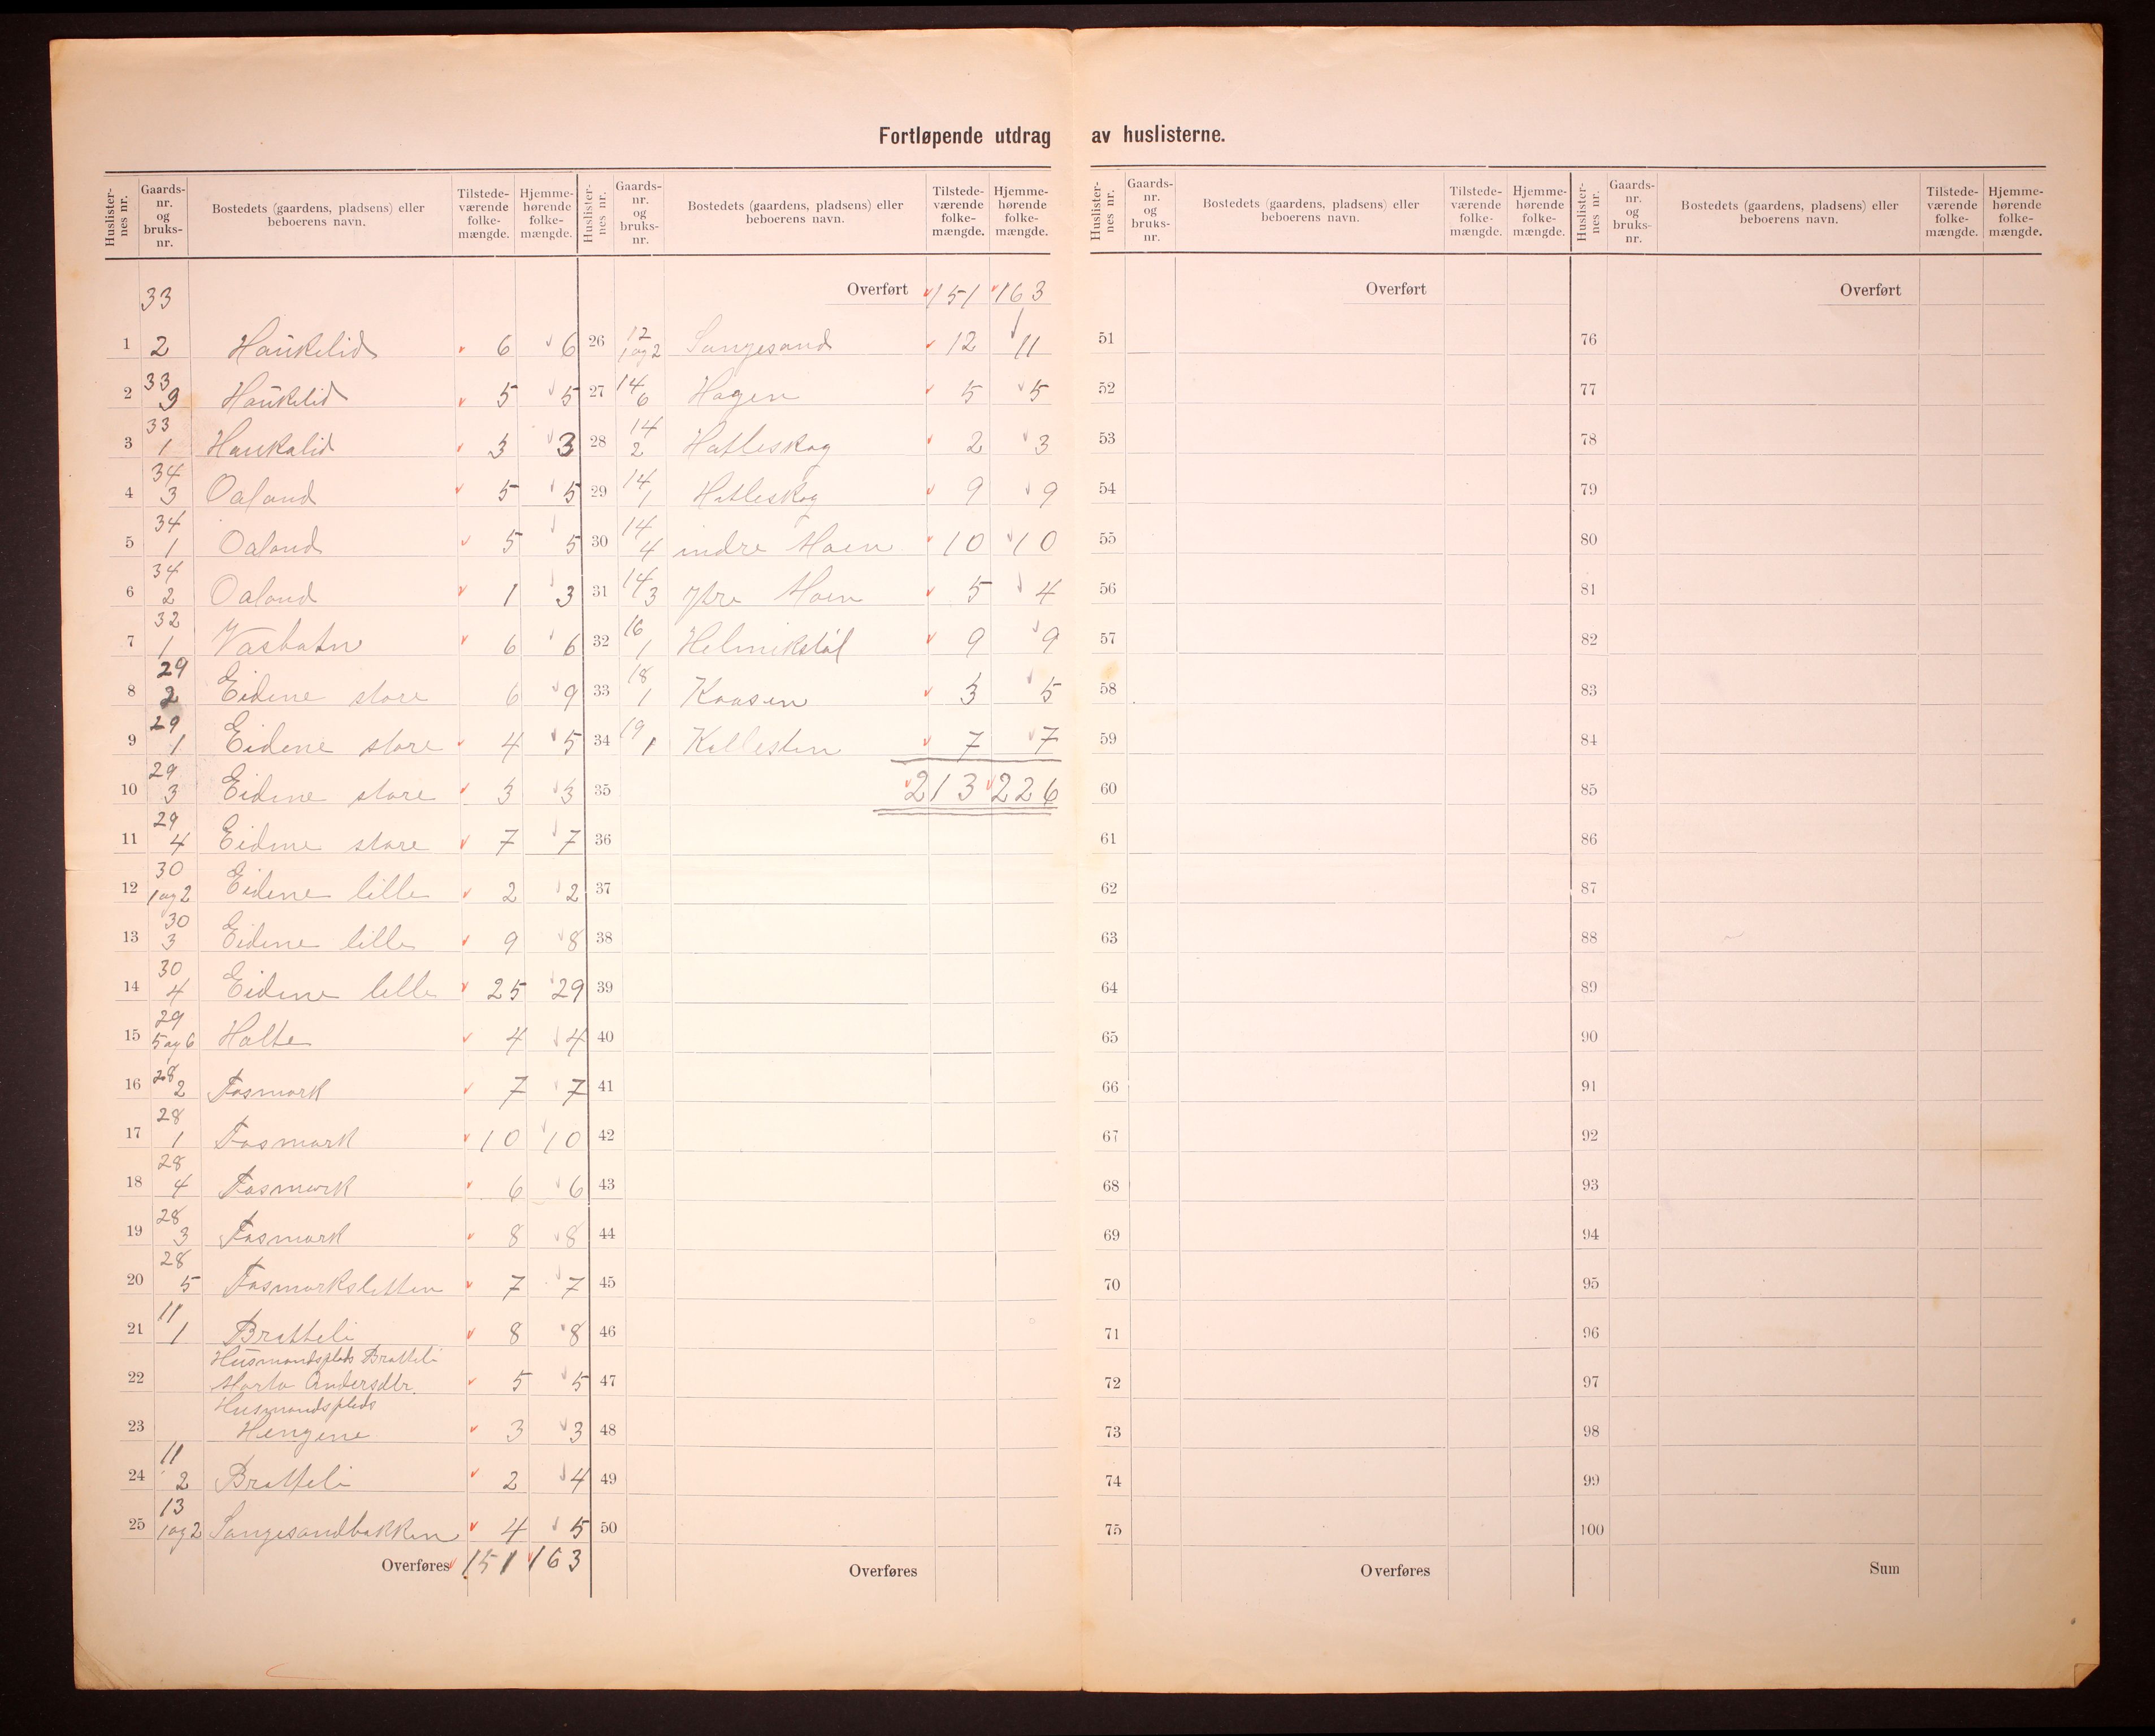 Fortløpende utdrag av huslisterne.
Huslister-nes nr. Gaards-nr. og bruks-nr. Bostedets (gaardens, pladsens) eller beboerens navn. Tilstede-værende folke-mængde. Hjemme-hørende folke-mængde.
1 33 2 Haukelid 6 6
2 33 3 Haukelid 5 5
3 33 1 Haukalid 3 3
4 34 3 Oaland 5 5
5 34 1 Oaland 5 5
6 34 2 Oaland 1 3
7 32 1 Vasbotn 6 6
8 29 2 Eidene store 6 9
9 29 1 Eidene store 4 5
10 29 3 Eidene store 3 3
11 29 4 Eidene store 7 7
12 30 1 og 2 Eidene lille 2 2
13 30 3 Eidene lille 9 8
14 30 4 Eidene lille 25 29
15 29 5 og 6 Holte 4 4
16 28 2 Fosmork 7 7
17 28 1 Fosmark 10 10
18 28 4 Fosmork 6 6
19 28 3 Fosmark 8 8
20 28 5 Fosmarksletten 7 7
21 11 1 Bratteli 8 8
22 Husmandsplads Bratteli
Marta Andersdtr. 5 5
23 Husmandsplads
Hengene 3 3
24 11 2 Bratteli 2 4
25 13 1 og 2 Songesandbakken 4 5
Overføres 151 163
Huslister-nes nr. Gaards-nr. og bruks-nr. Bostedets (gaardens, pladsens) eller beboerens navn. Tilstede-værende folke-mængde. Hjemme-hørende folke-mængde.
Overført 151 163
26 12 1 og 2 Songesand 12 11
27 14 6 Hagen 5 5
28 14 2 Hatleskog 2 3
29 14 1 Hatleskog 9 9
30 14 4 indre Moen 10 10
31 14 3 ytre Moen 5 4
32 16 1 Helmikstøl 9 9
33 18 1 Kaasen 3 5
34 19 1 Kallesten 7 7
35 213 226
36
37
38
39
40
41
42
43
44
45
46
47
48
49
50
Overføres
Huslister-nes nr. Gaards-nr. og bruks-nr. Bostedets (gaardens, pladsens) eller beboerens navn. Tilstede-værende folke-mængde. Hjemme-hørende folke-mængde.
Overført
51
52
53
54
55
56
57
58
59
60
61
62
63
64
65
66
67
68
69
70
71
72
73
74
75
Overføres
Huslister-nes nr. Gaards-nr. og bruks-nr. Bostedets (gaardens, pladsens) eller beboerens navn. Tilstede-værende folke-mængde. Hjemme-hørende folke-mængde.
Overført
76
77
78
79
80
81
82
83
84
85
86
87
88
89
90
91
92
93
94
95
96
97
98
99
100
Sum